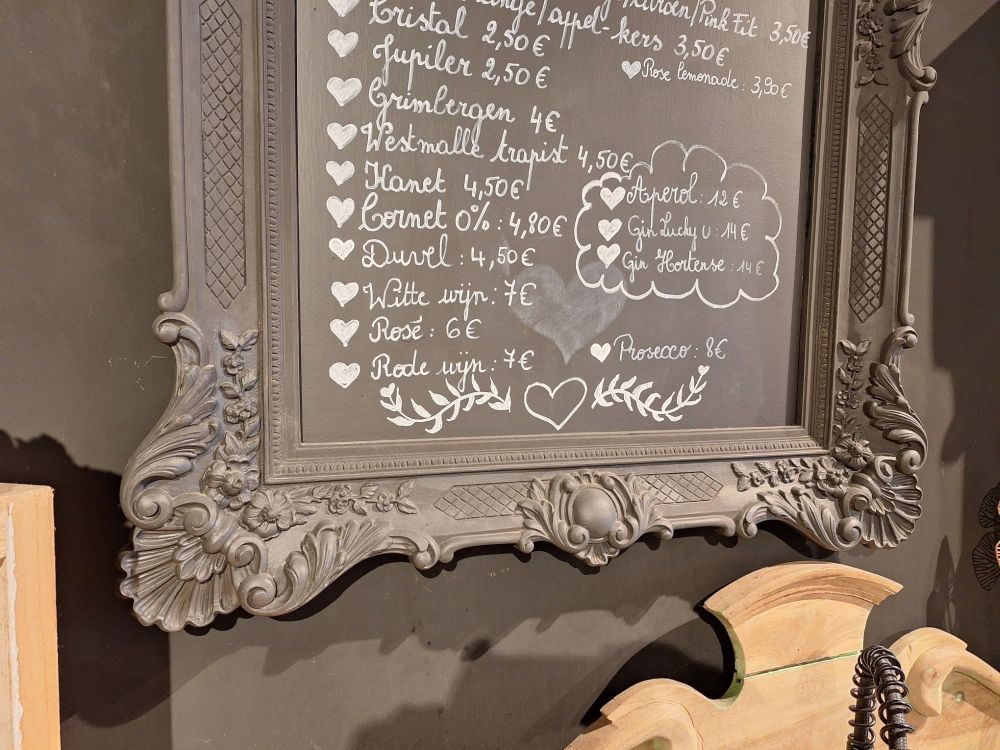 /appel-kers 3,50€
/Pink Fit 3,50€
Cristal 2,50€
Rose lemonade : 3,90€
Jupiler 2,50€
Grimbergen 4€
Westmalle trapist 4,50€
Kanet 4,50€
Cornet 0% : 4,80€
Duvel : 4,50€
Witte wijn : 7€
Rosé : 6€
Rode wijn : 7€
Aperol : 12€
Gin Lucky U : 14€
Gin Hortense : 14€
Prosecco : 8€